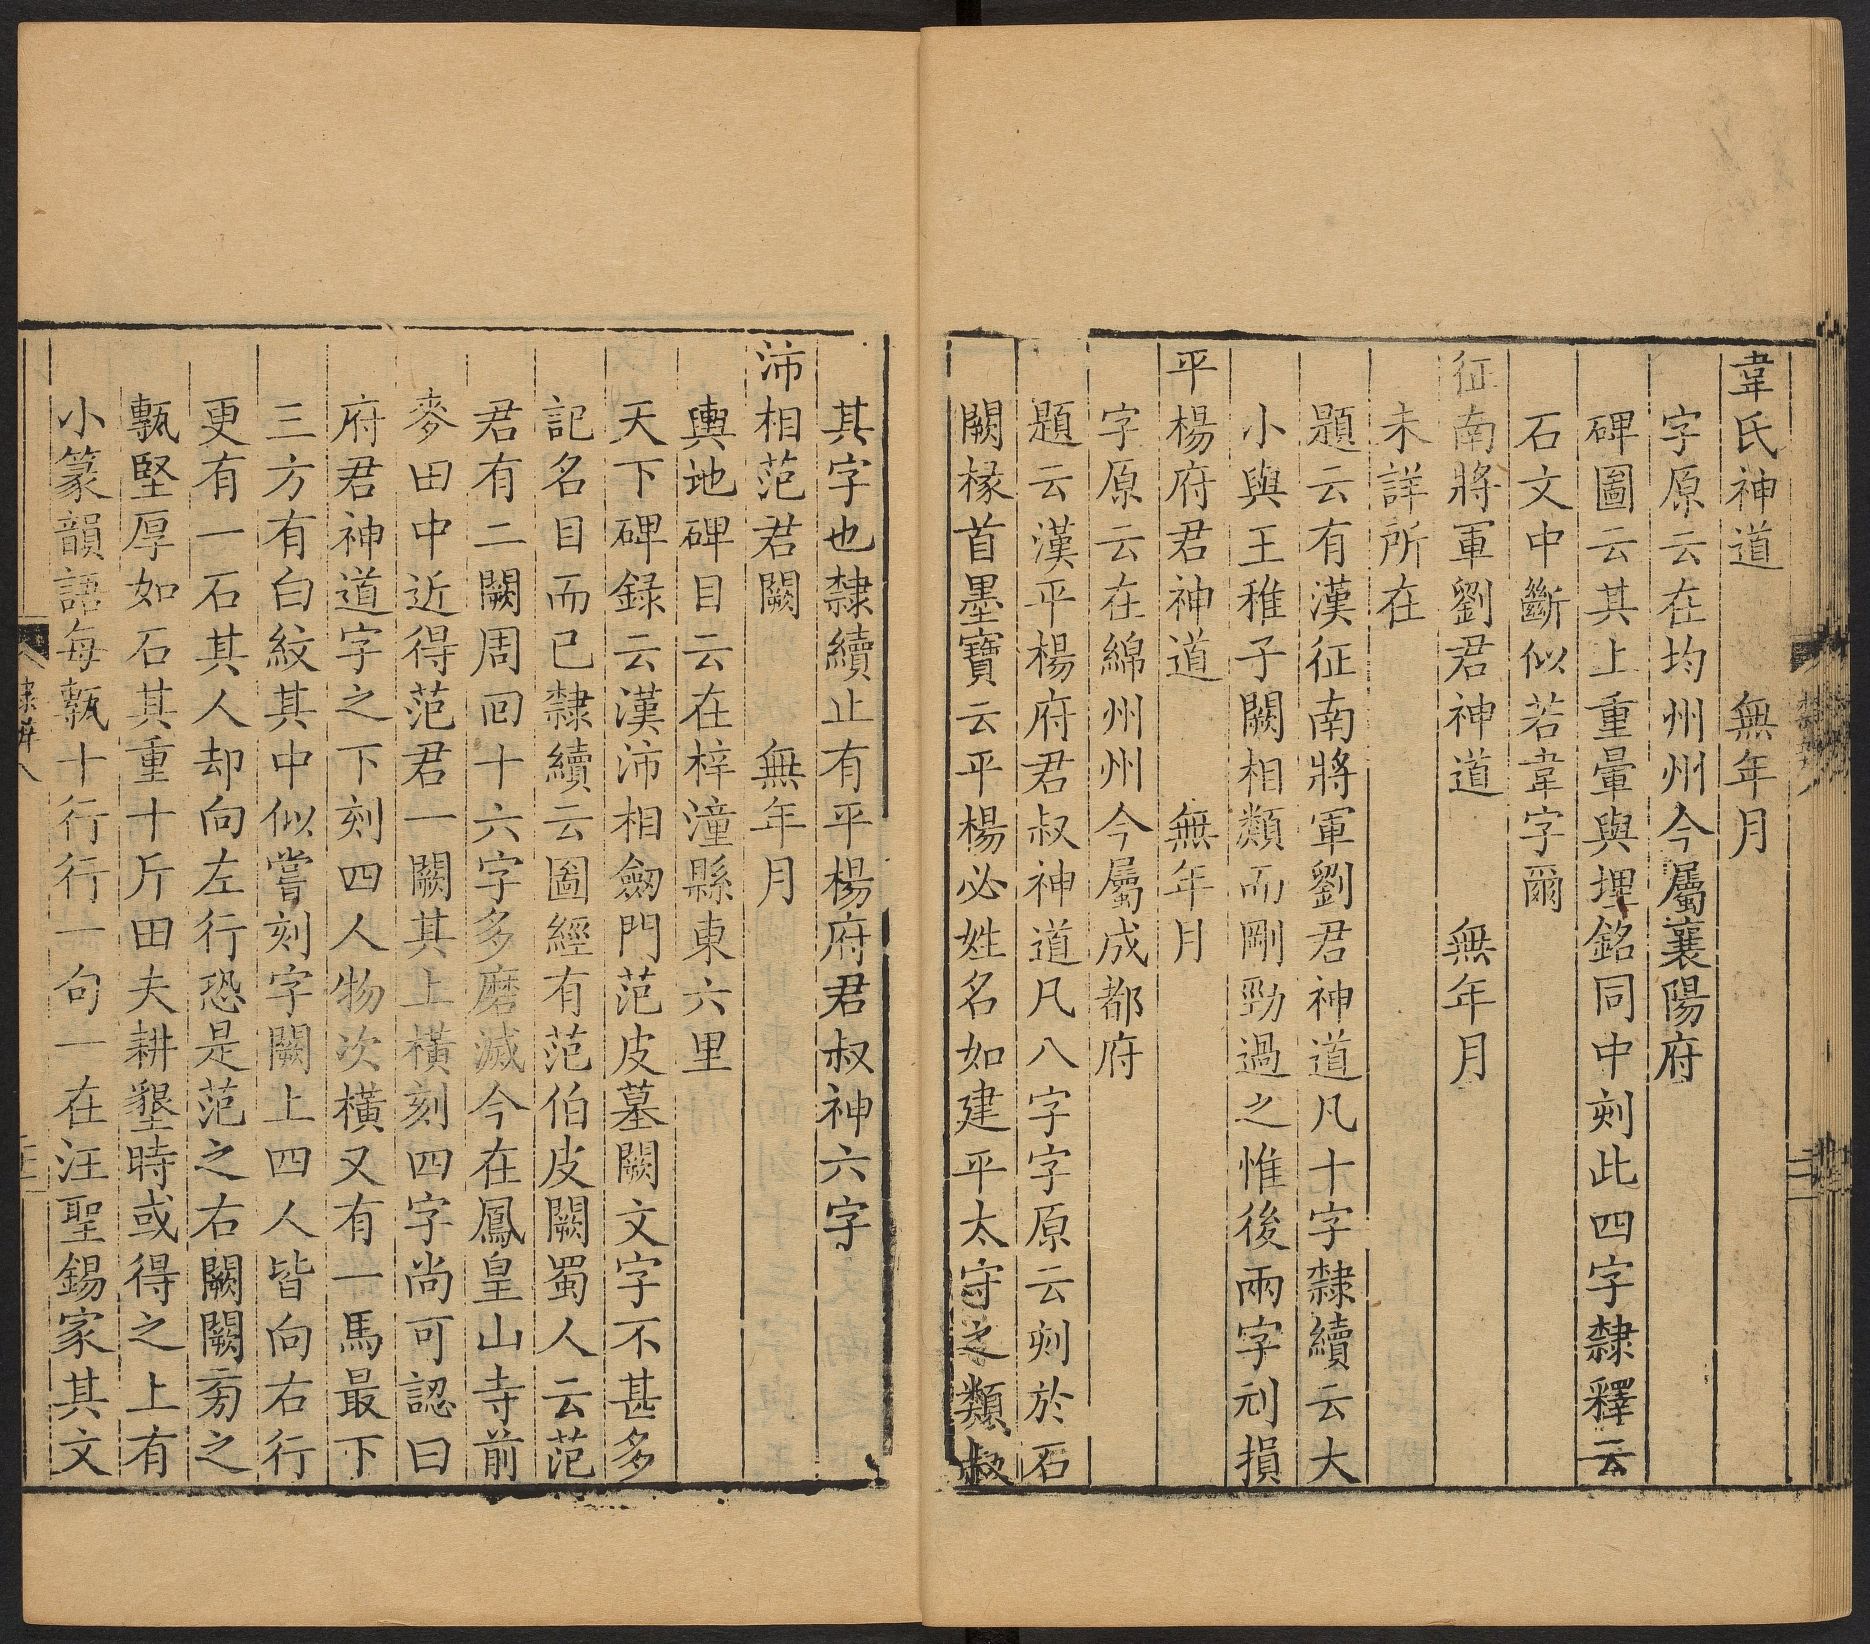 韋氏神道　無年月
字原云在均州州今屬襄陽府
碑圖云其上重暈與埋銘同中刻此四字隸釋云
石文中斷似若韋字爾
征南將軍劉君神道　無年月
未詳所在
題云有漢征南將軍劉君神道凡十字隸續云大
小與王稚子闕相類而剛勁過之惟後兩字刓損
平楊府君神道　無年月
字原云在綿州州今屬成都府
題云漢平楊府君叔神道凡八字字原云刻於石
闕椽首墨寶云平楊必姓名如建平太守之類叔
其字也隸續止有平楊府君叔神六字
沛相范君闕　無年月
輿地碑目云在梓潼縣東六里
天下碑錄云漢沛相劔門范皮墓闕文字不甚多
記名目而已隸續云圖經有范伯皮闕蜀人云范
君有二闕周回十六字多磨滅今在鳳皇山寺前
麥田中近得范君一闕其上橫刻四字尚可認曰
府君神道字之下刻四人物次橫又有一馬最下
三方有白紋其中似嘗刻字闕上四人皆向右行
更有一石其人却向左行恐是范之右闕闕旁之
甎堅厚如石其重十斤田夫耕墾時或得之上有
小篆韻語每甎十行行一句一在汪聖錫家其文
隸辨八